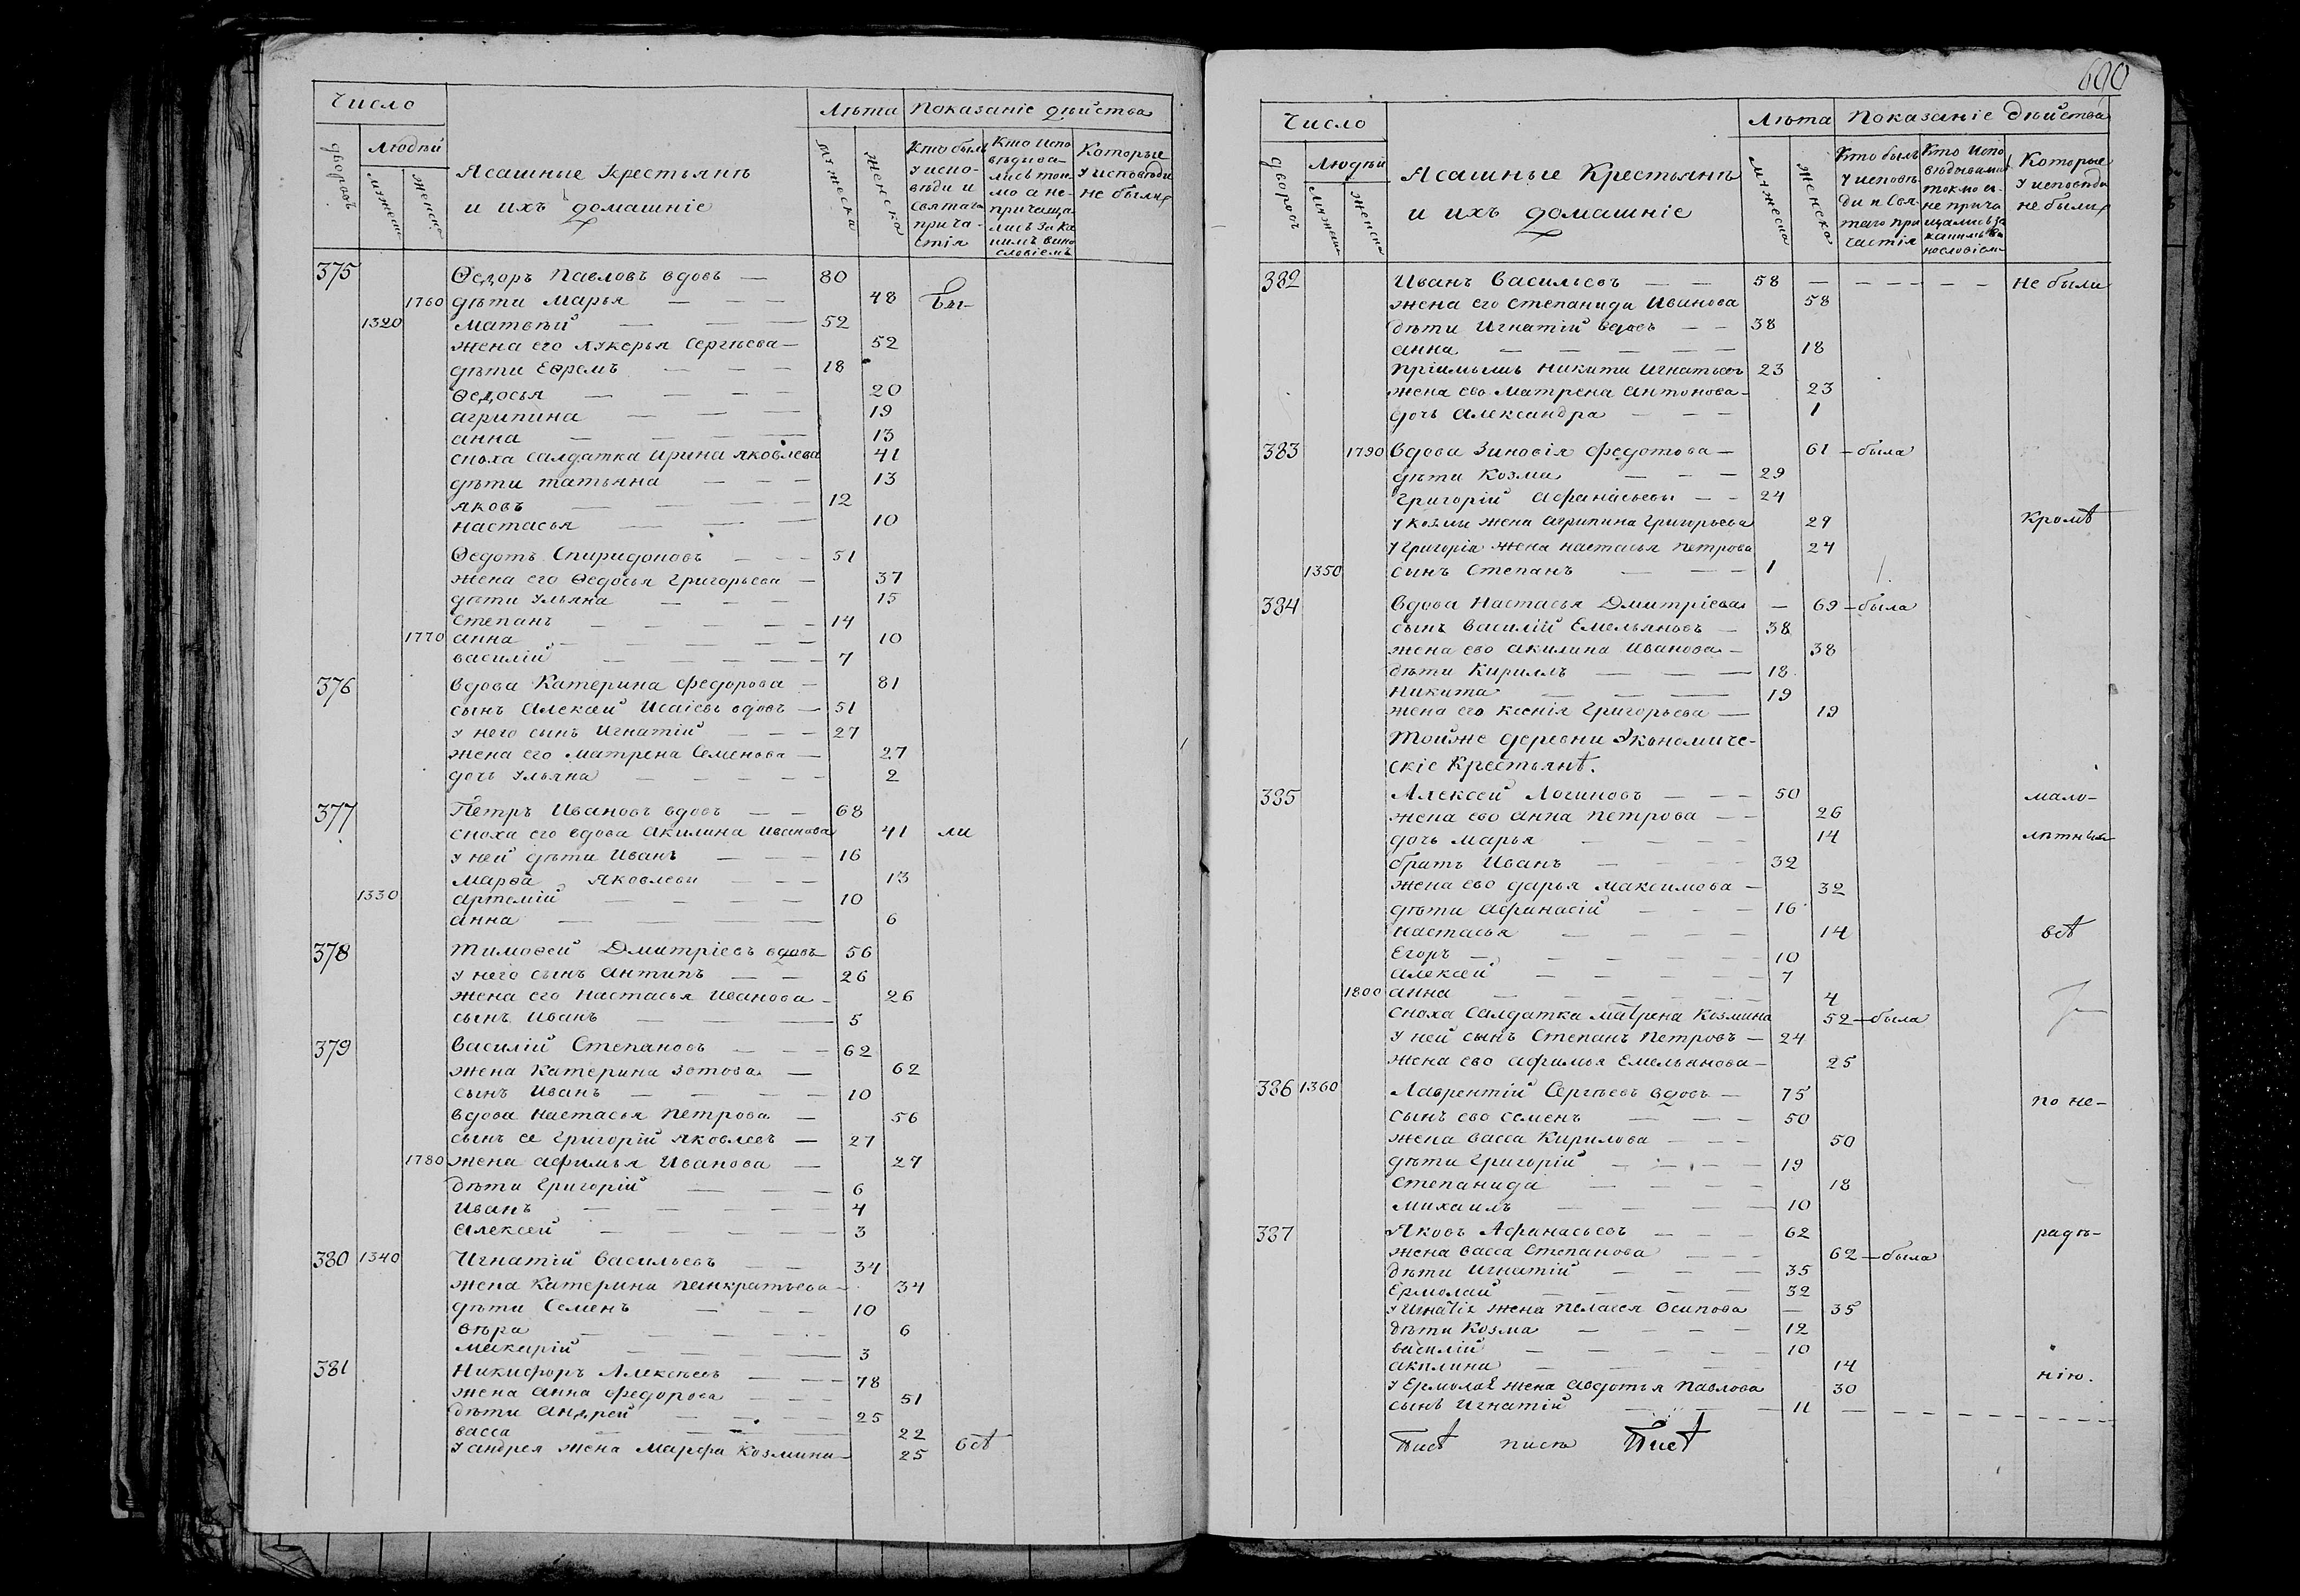 Число
Лѣта Показаніе дѣйства
дворовъ
Людѣй
мужеска
женска
Ясашные Крестьянѣ
и ихъ домашніе
мужеска
женска
Кто былъ
у испо-
вѣди и
святаго
прича-
стія
Кто испо
вѣдыва-
лись ток
мо а не-
причаща
лись за ка
кимъ вино
словіемъ
Которые
у исповѣди
не были
375 Ѳедоръ Павловъ вдовъ — 80
1760 дѣти Марья — — — 48 бы-
1320 Матвѣй — — — 52
жена его Лукерья Сергѣева — 52
дѣти Ефремъ — — — 18
Ѳедосья — — — — 20
агрипина — — — 19
анна — — — — 13
сноха салдатка Ирина Яковлева 41
дѣти татьяна — — — 13
яковъ — — — 12
настасья — — — 10
Ѳедотъ Спиридоновъ — — — 51
жена его Ѳедосья Григорьева — 37
дѣти Ульяна — — — 15
Степанъ — — — — 14
1770 анна — — — — — 10
василій — — — — 7
376 вдова Катерина Федорова — 81
сынъ Алексѣй Исаіевъ вдовъ — 51
у него сынъ Игнатій — — — 27
жена его Матрена Семенова — 27
дочь Ульяна — — — — 2
377 Петръ Ивановъ вдовъ — — 68
сноха его вдова Акилина Иванова 41 ли
у ней дѣти Иванъ — — — 16
Марѳа Яковлевы — — — 13
1330 артемій — — — — 10
анна — — — 6
378 Тимоѳей Дмитріевъ вдовъ — 56
у него сынъ Антипъ — — 26
жена его Настасья Иванова — 26
сынъ Иванъ — — — 5
379 Василій Степановъ — — — 62
жена Катерина Зотова — 62
сынъ Иванъ — — — — 10
вдова Настасья Петрова — 56
сынъ ее Григорій Яковлевъ — 27
1780 жена афимья Иванова — 27
дѣти Григорій — — 6
Иванъ — — — — 4
Алексей — — — — 3
380 1340 Игнатій Васильевъ — — 34
жена Катерина Панкратьева — 34
дѣти Семенъ — — — 10
вѣра — — — — — 6
макарій — — — 3
381 Никифоръ Алексѣевъ — — — 78
жена анна федорова — — — 51
дѣти андрей — — — 25
васса — — — 22
у андрея жена Марфа Козмина — 25 всѣ
690
Число
Лѣта Показаніе дѣйства
дворовъ
Людѣй
мужеска
женска
Ясашные Крестьянѣ
и ихъ домашніе
мужеска
женска
Кто былъ
у исповѣ
ди и Свя-
таго при
частія
Кто испо
вѣдывались
токмо а-
не прича
щались за
какимъ ви
нословіем
Которые
у исповѣди
не были
382 Иванъ Васильевъ — — 58 — — — — — — Не были
жена его Степанида Иванова 58
дѣти Игнатій вдовъ — — 38
анна — — — — — 18
пріимышъ Никита Игнатьевъ 23
жена ево Матрена Антонова — 23
дочь Александра — — — 1
383 1790 Вдова Зиновія Федотова — 61 — была
дѣти Козма — — — 29
Григорій Афанасьевы — — 24
у козмы жена агрипина Григорьева 29 кромѣ
у Григорія жена настасья Петрова 24
1350 сынъ Степанъ — — — 1
384 Вдова Настасья Дмитріева — 69 — была
сынъ Василій Емельяновъ — 38
жена ево Акилина Иванова — 38
дѣти Кирилъ — — — 18
Никита — — — 19
жена его Ксенія Григорьева — 19
Тойже деревни Экономиче-
скіе Крестьянѣ.
385 Алексей Логиновъ — — — 50 мало-
жена ево Анна Петрова — — 26
дочь Марья — — — — 14 лѣтныи
братъ Иванъ — — — — 32
жена ево дарья Максимова — 32
дѣти Афанасій — — — 16
настасья — — — — 14 всѣ
Егоръ — — — — — 10
алексей — — — — — 7
1800 анна — — — — — 4
сноха Салдатка Матрена Козмина 52 — была
у ней сынъ Степанъ Петровъ — 24
жена ево афимья Емельянова — 25
386 1360 Лаврентій Сергѣевъ вдовъ — 75 по не-
сынъ ево Семенъ — — — 50
жена васса Кирилова — — — 50
дѣти Григорій — — — — 19
Степанида — — — — 18
михаилъ — — — — 10
387 Яковъ Афанасьевъ — — — 62 радѣ-
жена васса Степанова — — — 62 — была
дѣти Игнатій — — — 35
Ермолай — — — — 32
у Игнатія жена Пелагея Осипова — 35
дѣти Козма — — — — 12
василій — — — — — 10
акилина — — — — 14
у Ермолая жена Авдотья Павлова 30 нію.
сынъ Игнатій — — — — 11